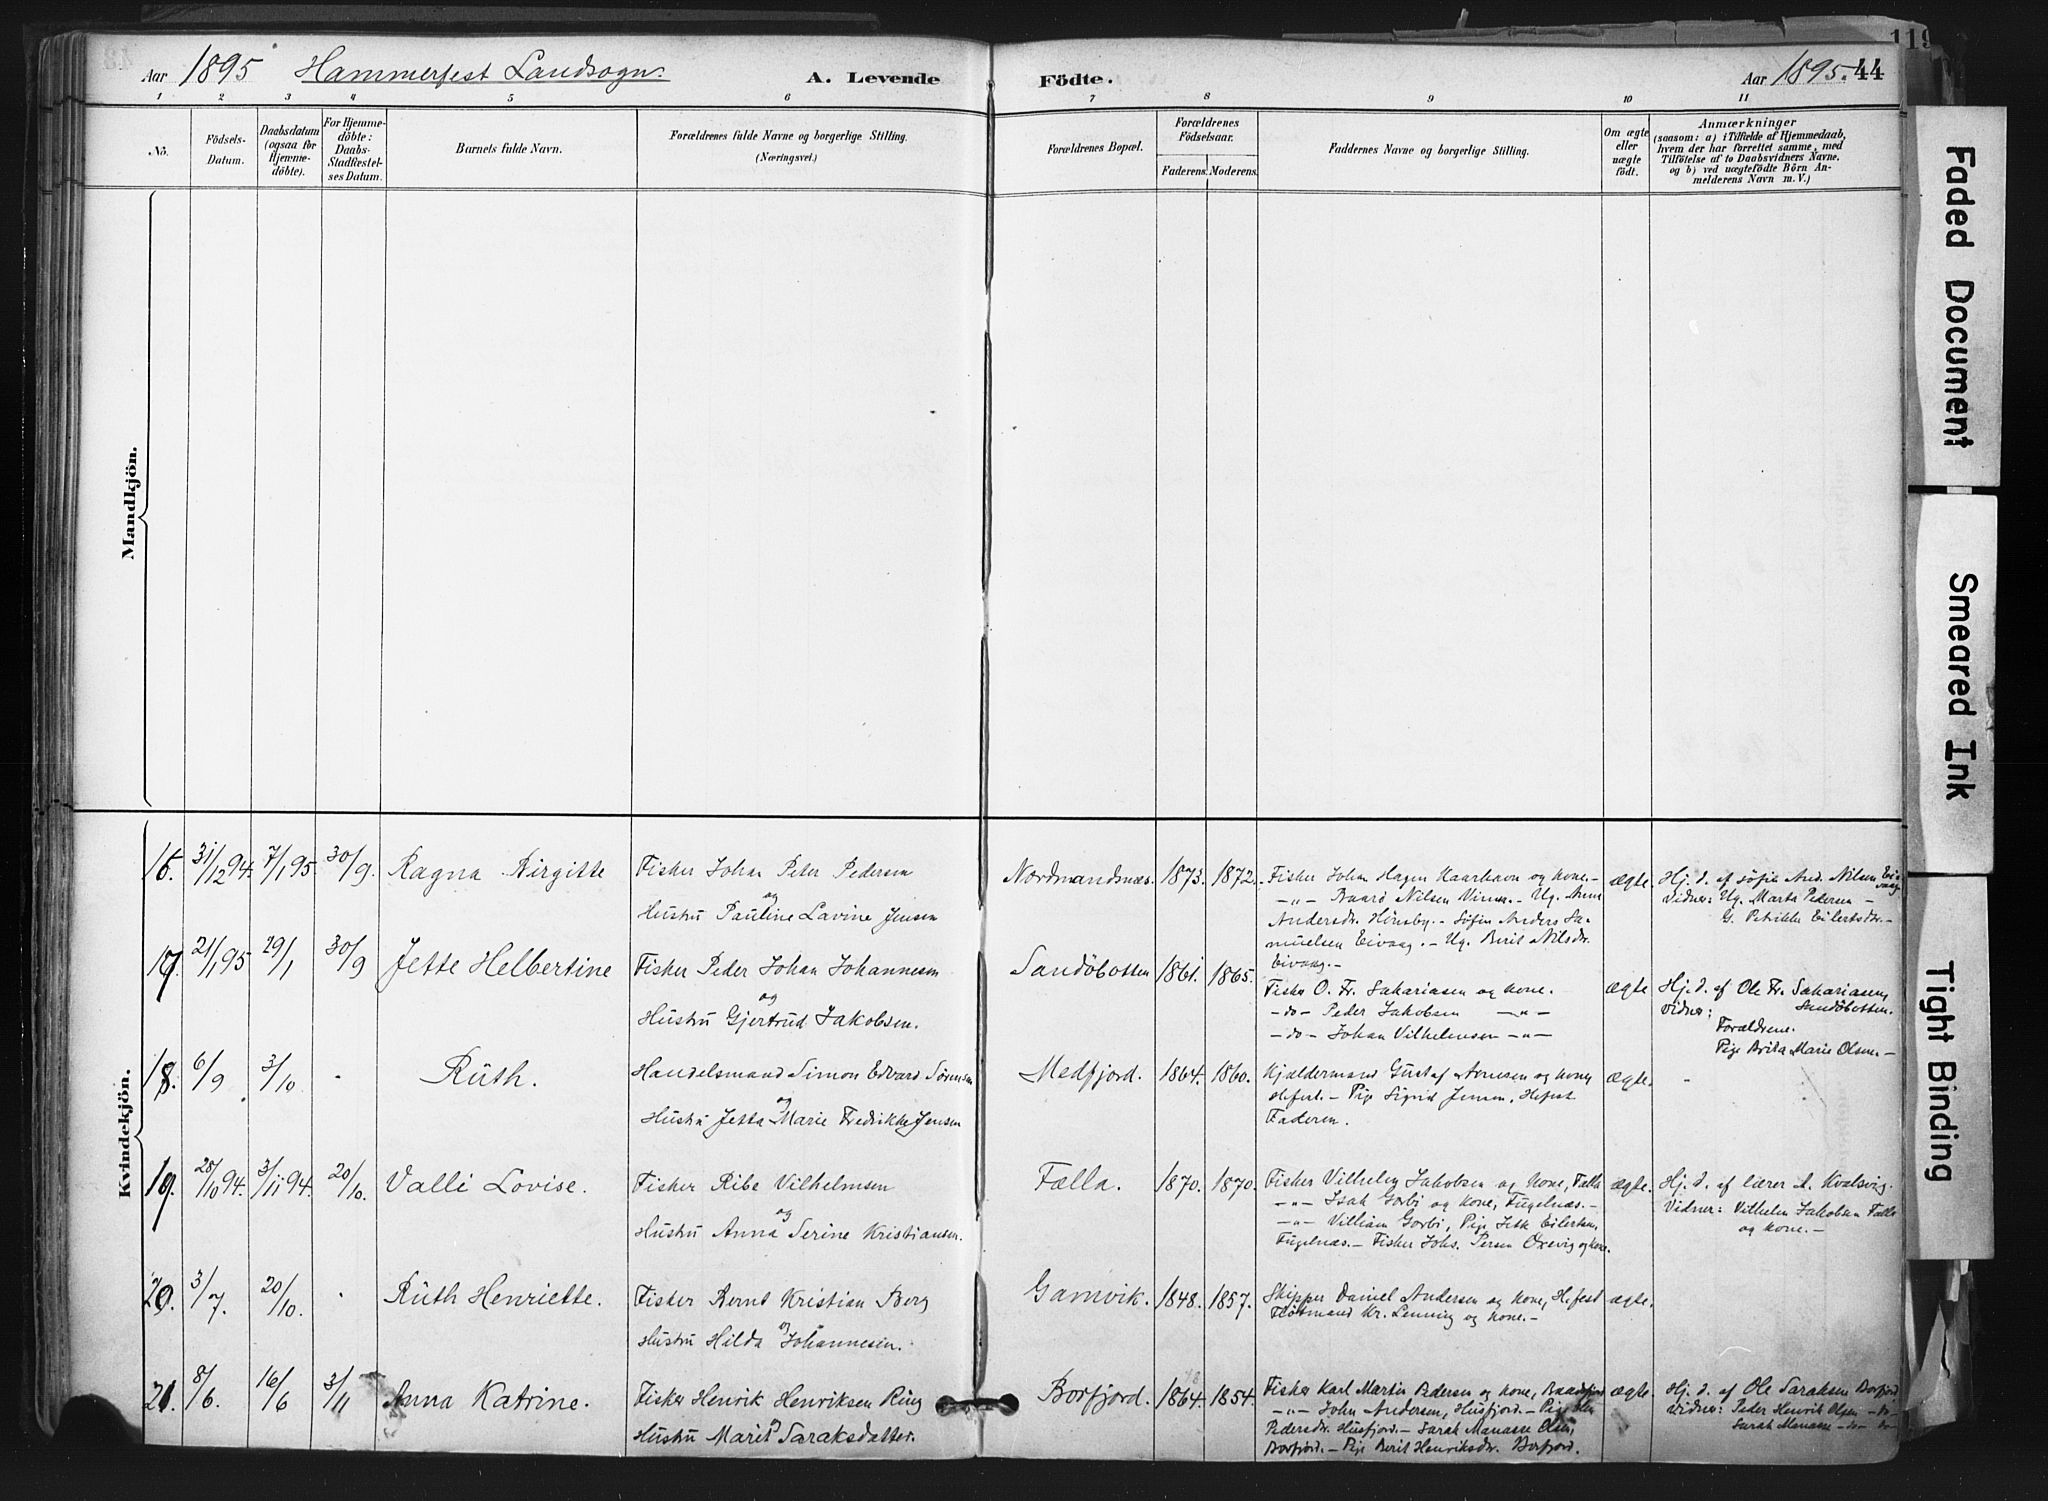 119
Aar 1895 Hammerfest Landsogn. A. Levende Födte. Aar 1895. 44
1 2 3 4 5 6 7 8 9 10 11
No.
Födsels-Datum.
Daabsdatum (ogsaa for Hjemmedöbte).
For Hjemmedöbte: Daabs-Stadfæstelses Datum.
Barnets fulde Navn.
Forældrenes fulde Navne og borgerlige Stilling.
(Næringsvei.)
Forældrenes Bopæl.
Forældrenes Födselsaar.
Faderens. Moderens.
Faddernes Navne og borgerlige Stilling.
Om ægte eller uægte födt.
Anmærkninger
(saasom: a) i Tilfælde af Hjemmedaab,
hvem der har forrettet samme, med
Tilföielse af to Daabsvidners Navne.
og b) ved uægtefödte Börn Anmelderens Navn m. V.)
Mandkjön.
Kvindekjön.
16. 31/12 94. 7/1 95. 30/9. Ragna Birgitte
Fisker Johan Peter Pedersen
og
Hustru Pauline Lavine Jensen
Nordmandsnæs. 1873. 1872.
Fisker Johan Hagen Kaarhavn og kone.
-"- Baard Nilsen
Andersdr. Hönsby. - Söfin Anders Samuelsen Eivaag. - Ug. Berit Nilsdr.
Eivaag.
ægte
Hj. d. af Söfin And. Nilsen Eivaag
Vidner: Ug. Marta Pedersen -
G. Petrikke Eilertsdr.
17. 21/1 95 29/1 30/9 Jette Helbertine
Fisker Peder Johan Johannesen
og
Hustru Gjertrud Jakobsen.
Sandöbotten 1861. 1865.
Fisker O. Fr. Sakariasen og kone.
-do- Peder Jakobsen -"-
-do- Johan Vilhelmsen -"-
ægte
Hj. d. af Ole Fr. Sakariasen,
Sandöbotten.
Vidner:
Forældrene.
Pige Brita Marie Olsen. -
18. 6/9 3/10 - Rüth.
Handelsmand Simon Edvard Sörensen
og
Hustru Jetta Marie Fredrikke Jensen
Medfjord. 1864. 1860.
Kjældermand Gustaf Arnesen og kone,
Hfest. - Pige Sigrid Jensen, Hfest
Faderen.
ægte.
19. 28/10 94. 3/11 94. 20/10. Valli Lovise.
Fisker Ribe Vilhelmsen
og
Hustru Anna Serine Kristiansen.
Fælla. 1870. 1870.
Fisker Vilhelm Jakobsen og kone, Fælla
-"- Isak Gorbi og kone, Fuglenæs. -
-"- Villiam Gorbi, Pige Eilertsen,
Fuglenæs. - Fisker Johs. Persen Orevig og kone.
ægte.
Hj. d. af lærer A. Kvalsvig.
Vidner: Vilhelm Jakobsen Fælla
og kone. -
20. 3/7. 20/10. - Rüth Henriette.
Fisker Bernt Kristian Berg
og
Hustru Hilda Johannesen.
Gamvik. 1848. 1857.
Skipper Daniel Andersen og kone, Hfest
Flötmand Kr. Lenning og kone. -
ægte.
21. 8/6. 16/6 3/11 Anna Katrine.
Fisker Henrik Henriksen Ring
Hustru Marit Saraksdatter.
Borfjord. 1864. 1854.
Fisker Karl Martin Pedersen og kone,
-"- John Andersen, Husfjord. - Pige
Pedersdr. Husfjord. - Sarak Manasse Olsen,
Borfjord. - Pige Berit Henriksdr. Borfjord.
ægte.
Hj. d. af Ole Saraksen Borfjord
Vidner: Peder Henrik Olsen -do-
Sarak Manasse -do-
Faded Document
Smeared Ink
Tight Binding